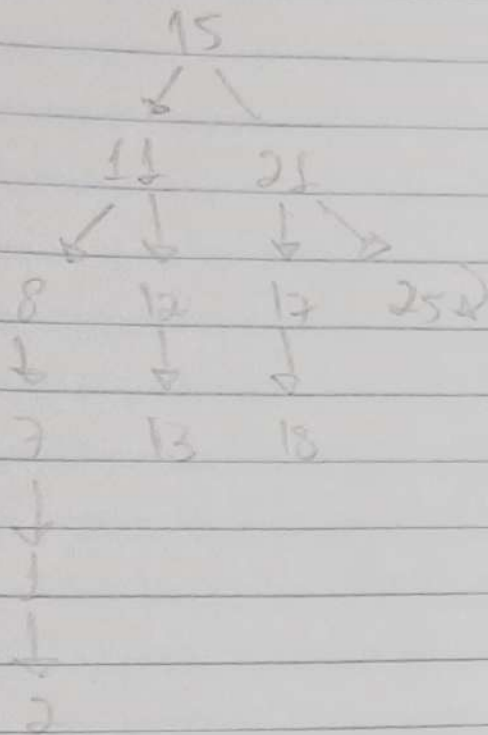 15
11 21
8 12 17 25
7 13 18
1
2